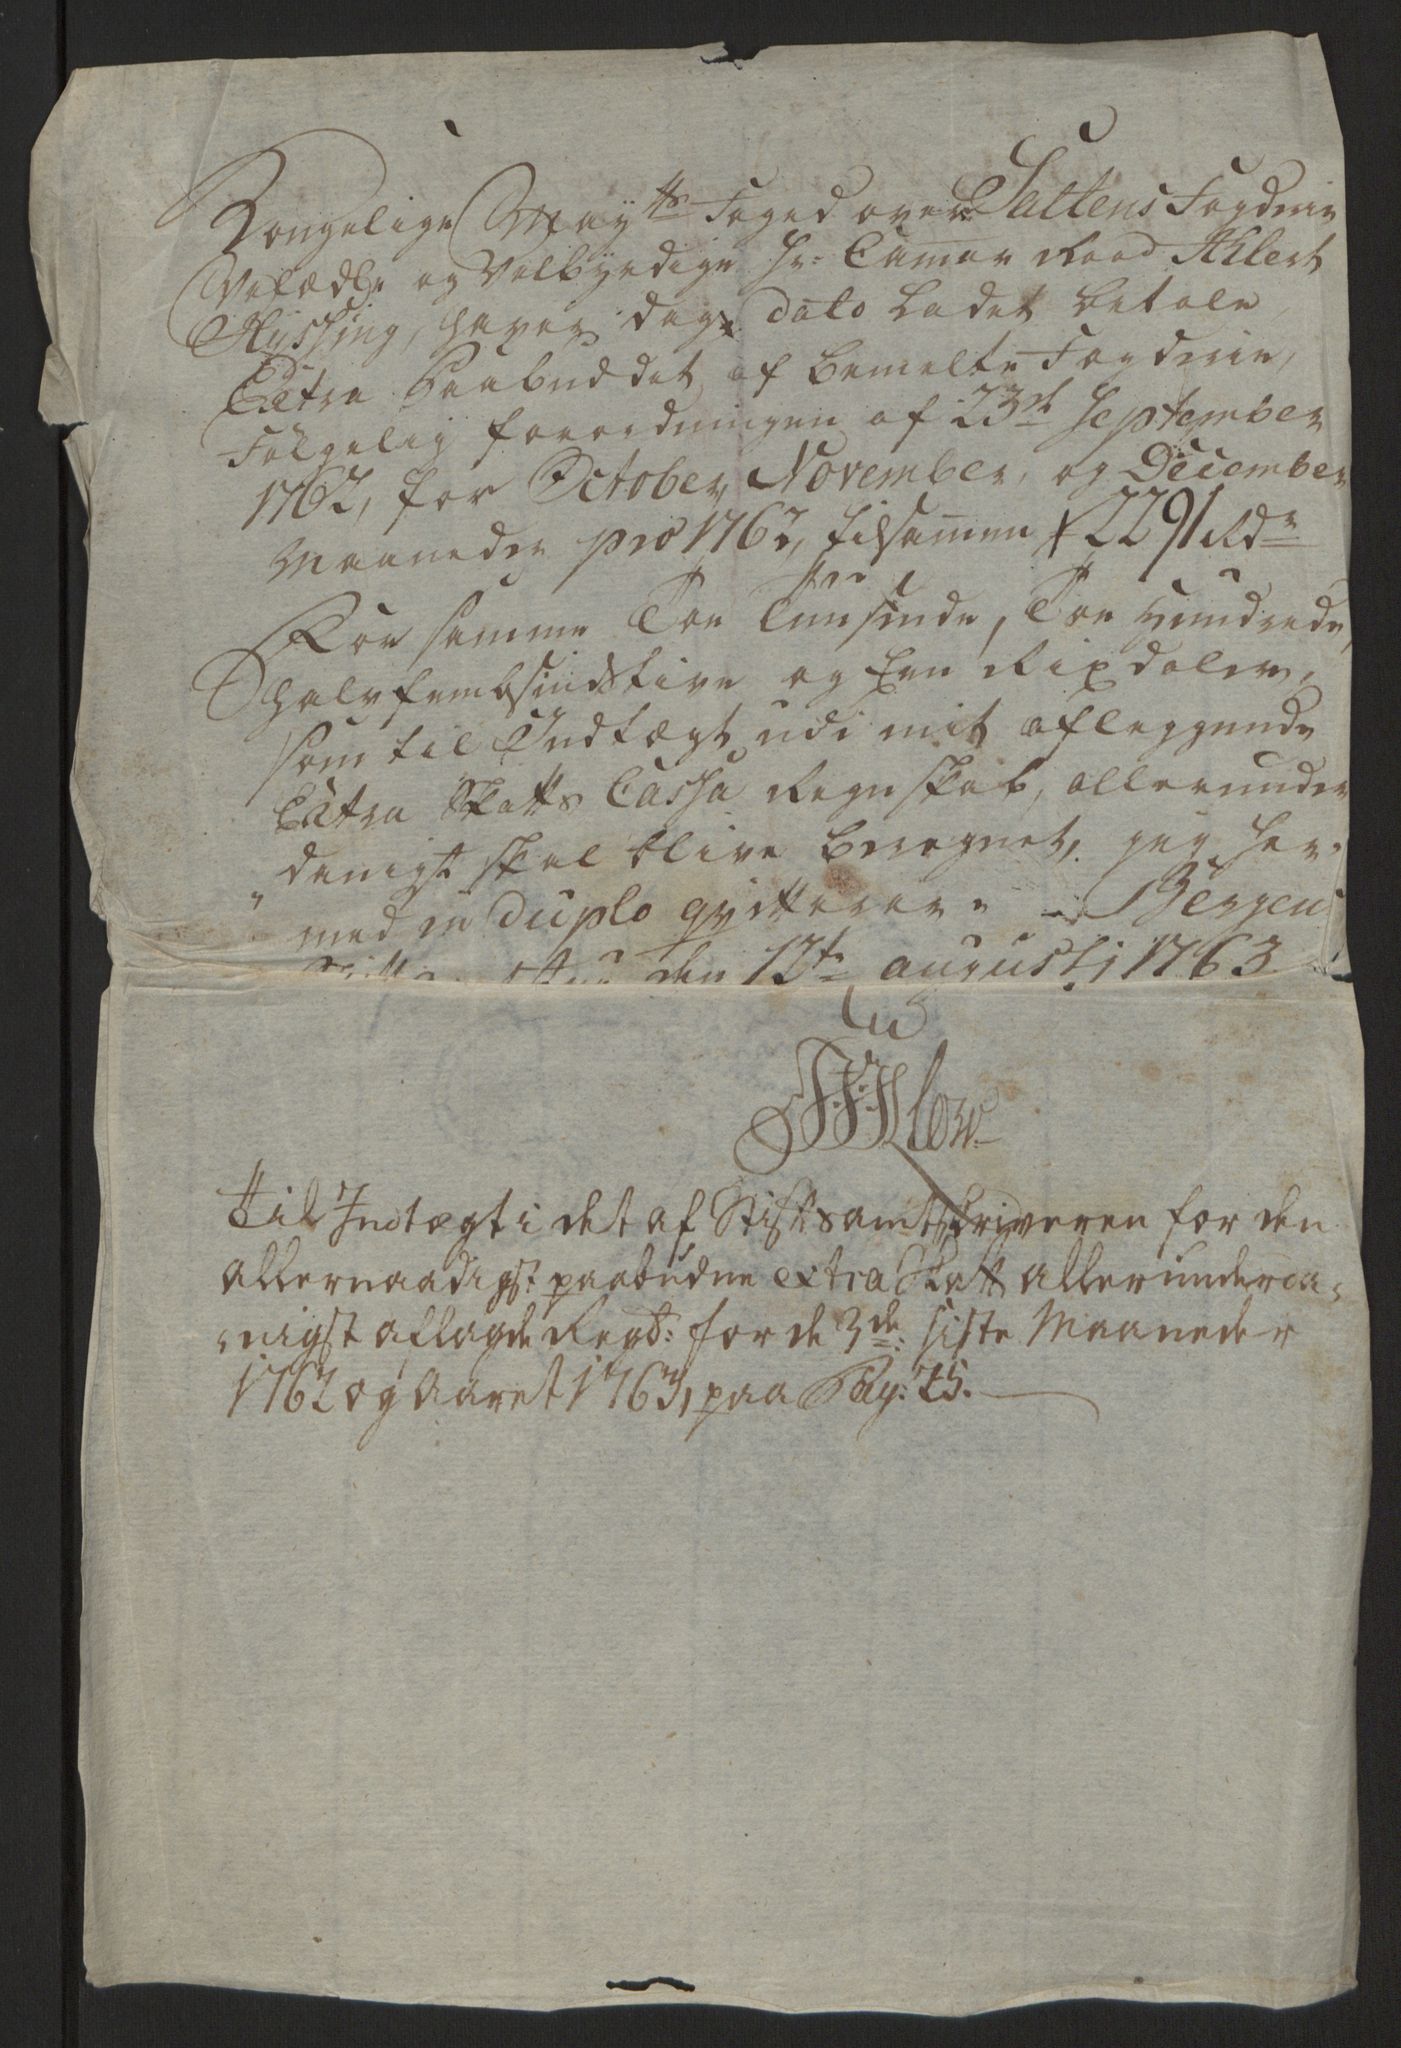 Kongelige Mayts Foged over Saltens Fogderie
Velædle og Velbyrdige Hr: Camer Raad Ahlert
Hÿssing, haver dags dato ladet betale,
Extra Paabuddet af bemelte Fogderie,
Følgelig forordningen af 23de September
1762, for October, November, og December
Maaneder pro 1762, tilsamen 2291 Rdr
For samme Toe Tuusinde, Toe Hundrede,
halvfembsindstive og Een Rixdaler,
som til Indtægt udi mit aflæggende
Extra Skatts Cassa Regnskab, allerunder
danigst skal blive beregnet, jeg her-
med in duplo qvitterer. Bergens
den 12te augustj 1763
JJKlow
Til Indtægt i det af Stiftsamtskriveren for den
allernaadigst paabudne extra Skatt allerunderda-
nigst aflagde Regsk: for de 3de: siste Maaneder
1762 og Aaret 1763, paa Pag: 25.